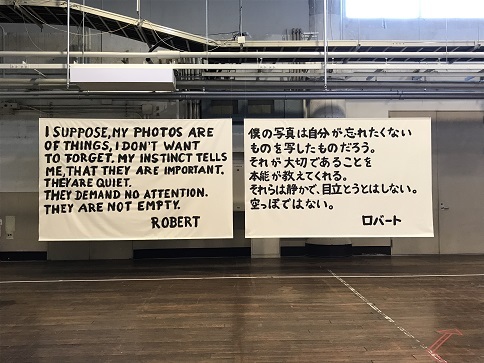 I SUPPOSE, MY PHOTOS ARE
OF THINGS, I DON'T WANT
TO FORGET. MY INSTINCT TELLS
ME, THAT THEY ARE IMPORTANT.
THEY ARE QUIET.
THEY DEMAND NO ATTENTION.
THEY ARE NOT EMPTY.
ROBERT
僕の写真は自分が忘れたくない
ものを写したものだろう。
それが大切であることを
本能が教えてくれる。
それらは静かで、目立とうとはしない。
空っぽではない。
ロバート